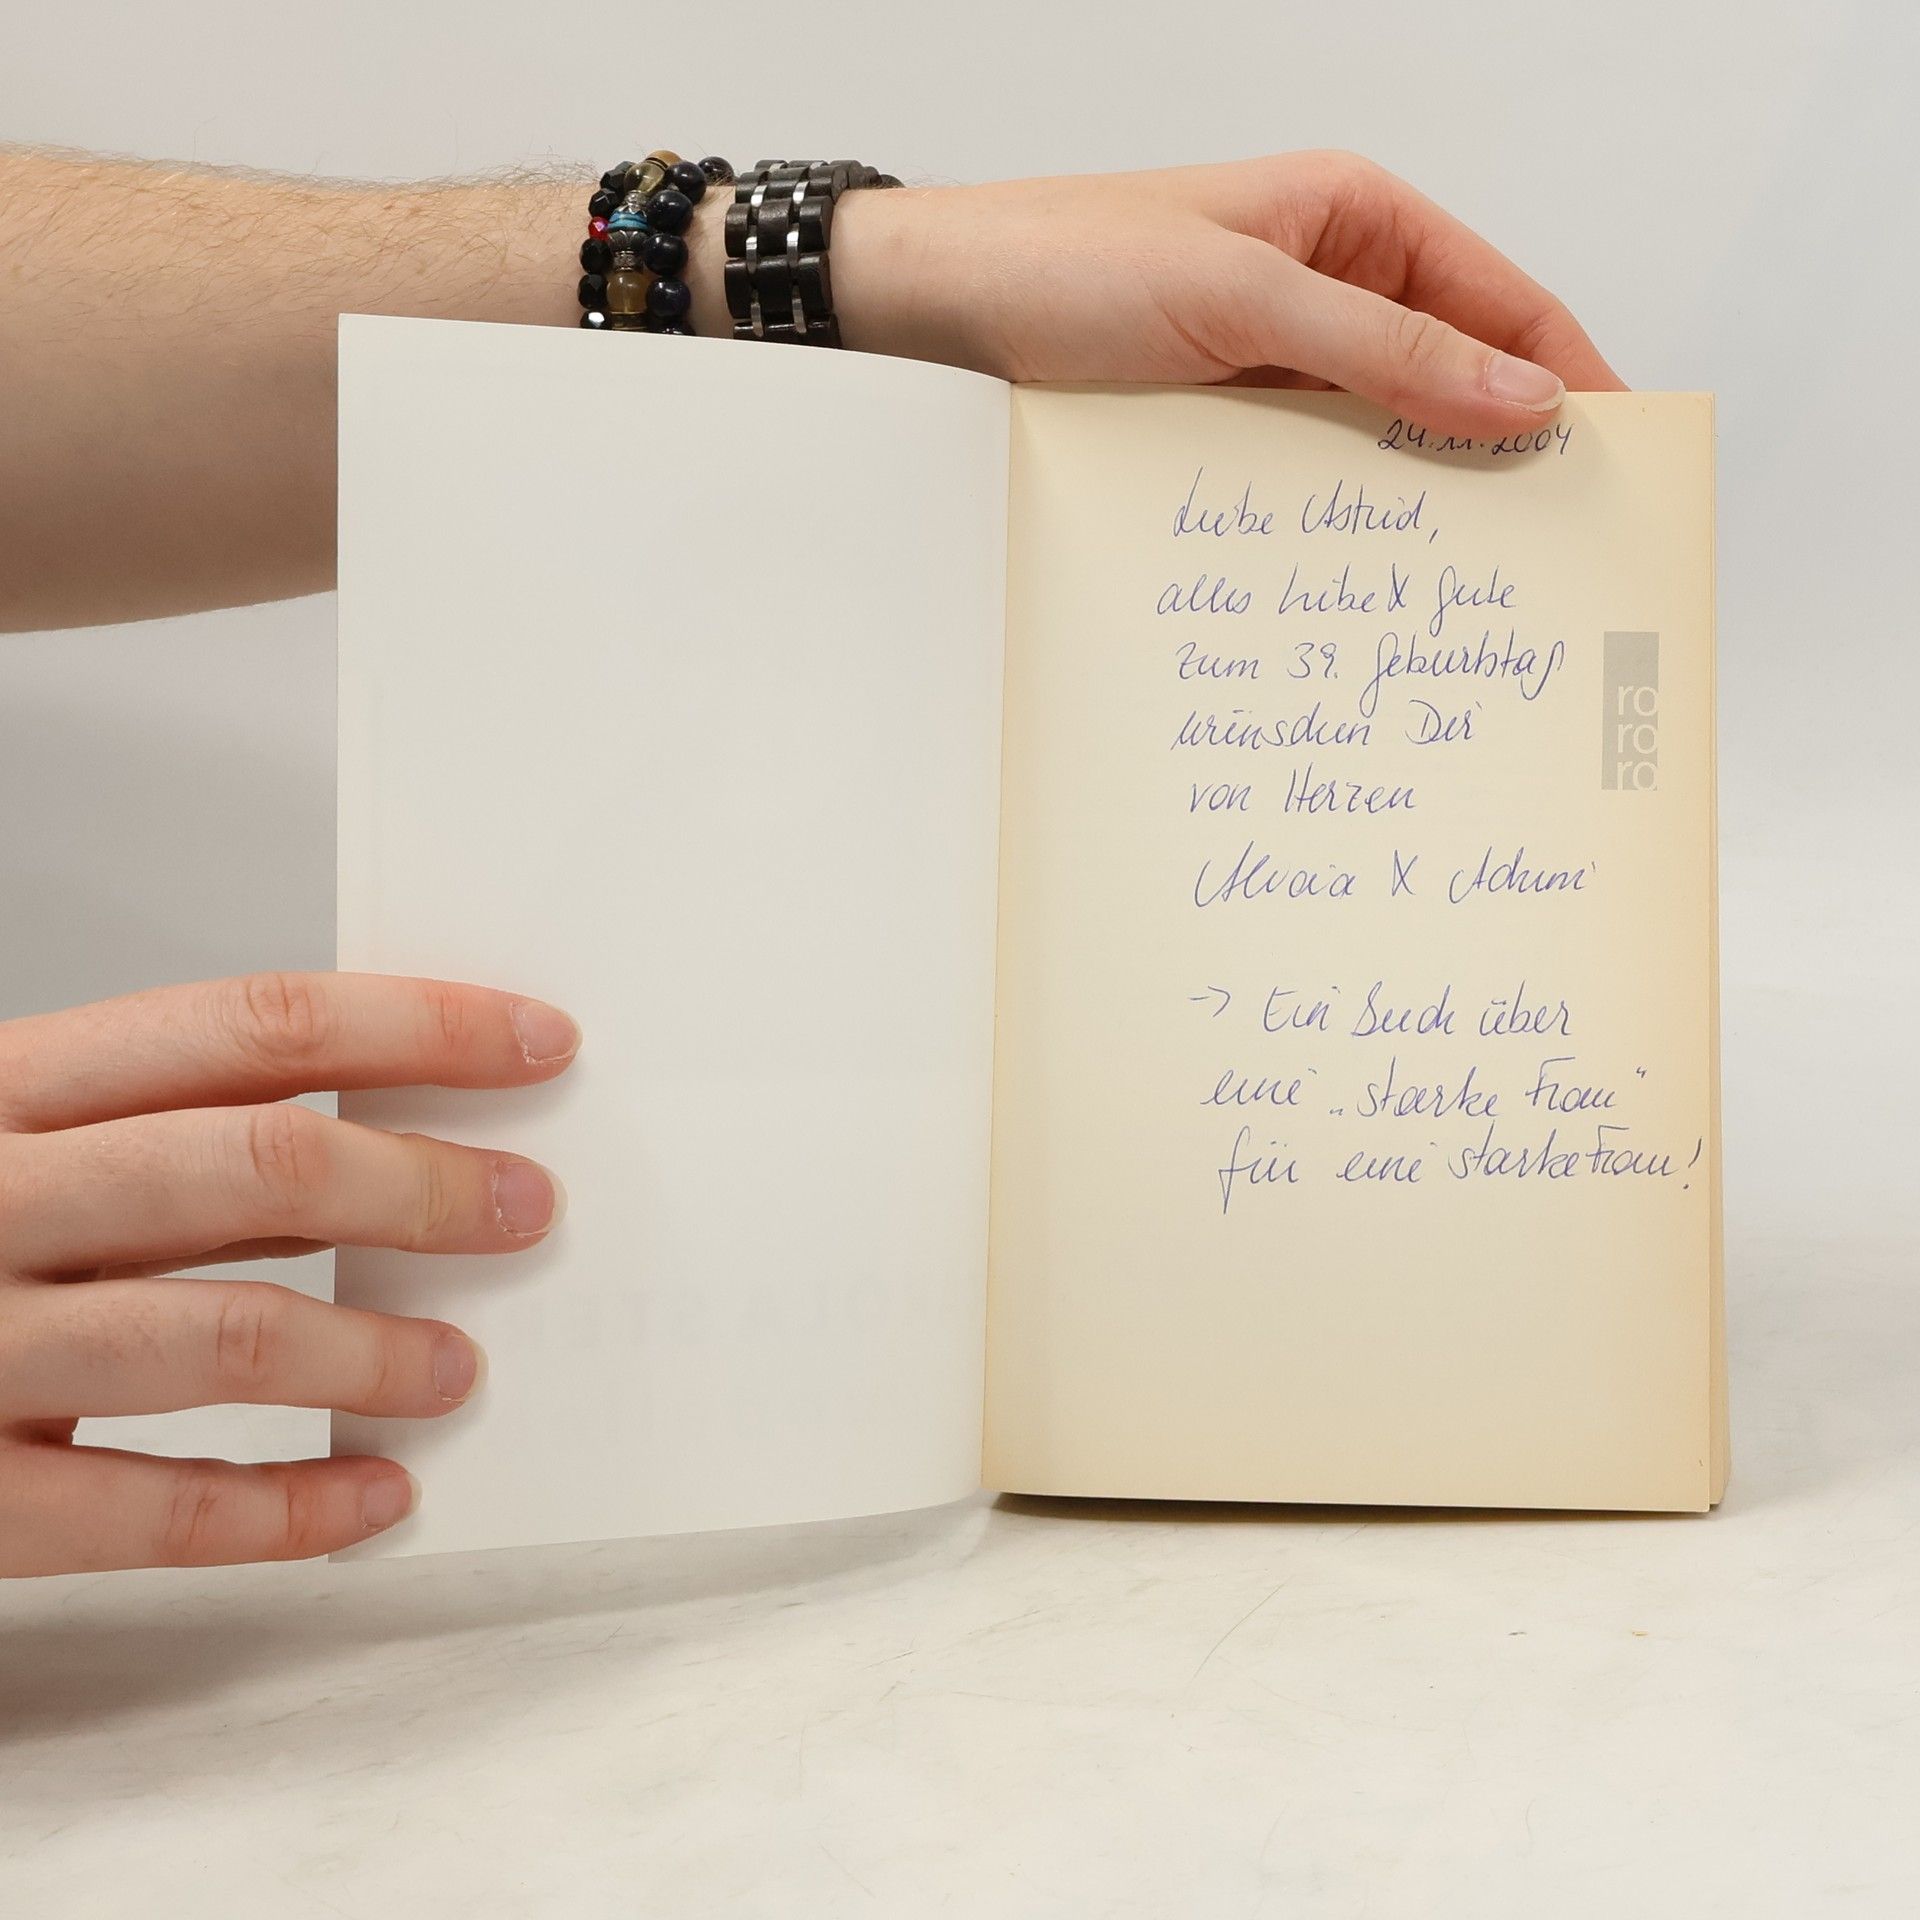 24.11.2004
Liebe Astrid,
alles Liebe & Gute
zum 39. Geburtstag
wünschen Dir
von Herzen
&
→ Ein Buch über
eine „starke Frau“
für eine starke Frau!
ro
ro
ro